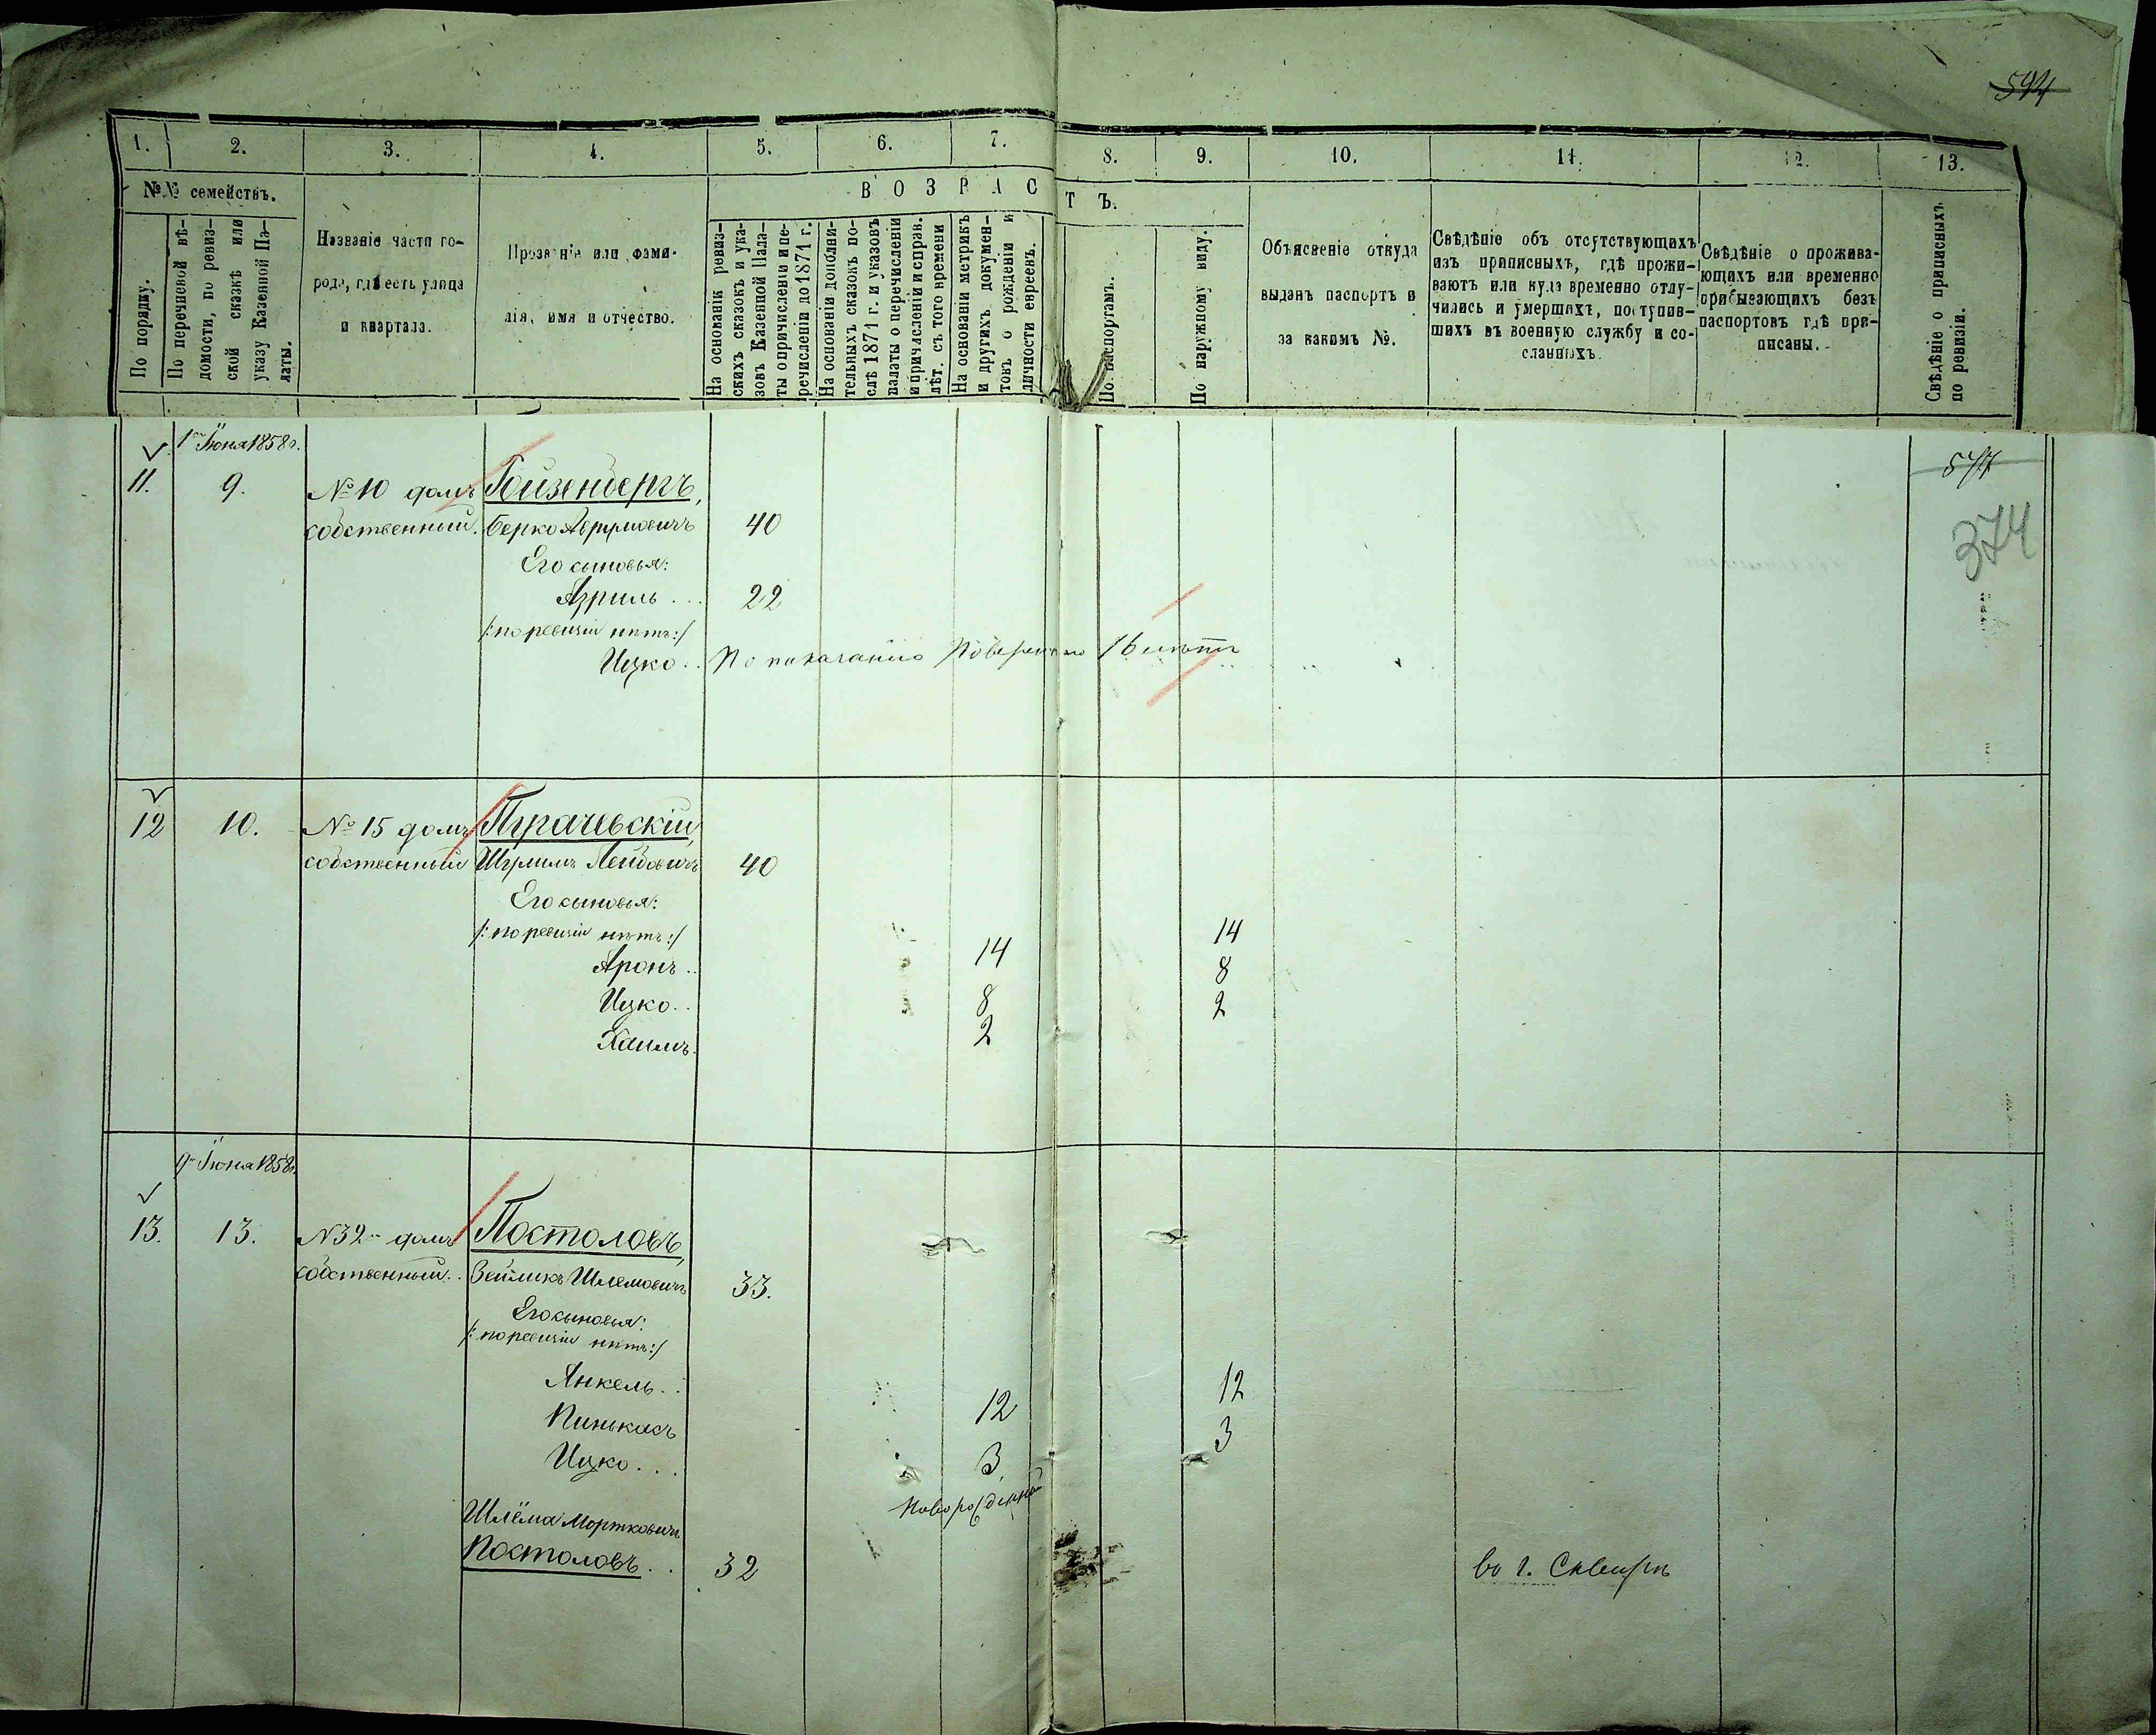 594
1. 2. 3. 4. 5. 6. 7. 8. 9. 10. 11. 12. 13.
№№ семействъ.
По порядку.
По перечневой вѣ-
домости, по ревиз-
ской сказкѣ или
указу Казенной Па-
латы.
Названіе части го-
рода, гдѣ есть улица
и квартала.
Прозваніе или фами-
лія, имя и отчество.
ВОЗРАСТЪ.
На основаніи ревиз-
скихъ сказокъ и ука-
зовъ Казенной Пала-
ты о причисленіи и пе-
речисленіи до 1871 г.
На основаніи дополни-
тельныхъ сказокъ по-
слѣ 1871 г. и указовъ
палаты о перечисленіи
и причисленіи и справ.
лѣт. съ того времени
На основаніи метрикъ
и другихъ докумен-
товъ о рожденіи и
личности евреевъ.
По паспортамъ.
По наружному виду.
Объясненіе откуда
выданъ паспортъ и
за какимъ №.
Свѣдѣніе объ отсутствующихъ
изъ приписныхъ, гдѣ прожи-
ваютъ или куда временно отлу-
чились и умершихъ, поступив-
шихъ въ военную службу и со-
сланныхъ.
Свѣдѣніе о прожива-
ющихъ или временно
прибывающихъ безъ
паспортовъ гдѣ при-
писаны.
Свѣдѣніе о приписныхъ
по ревизіи.
1го Іюня 1858 г.
374
11. 9. № 10 домъ Гойзенбергъ,
собственный. Берко Аврумовичъ 40
Его сыновья:
Азриль . . . 22
/:по ревизіи нѣтъ:/
Ицко . . По показанію Повѣреннаго 16 лѣтъ
12 10. № 15 домъ
собственный Шулимъ Лейбовичъ 40
Его сыновья:
/:по ревизіи нѣтъ:/
Аронъ . . 14 14
Ицко . . 8 8
Хаимъ. 2 2
9го Іюня 1858 г.
13. 13. № 32й домъ Постоловъ,
собственный. . Зейликъ Шлемовичъ 33.
Его сыновья:
/:по ревизіи нѣтъ:/
Янкель . . 12 12
Пинькасъ 3. 3
Ицко . . . Новорожденный
Шлёма Мортковичъ
Постоловъ . . 32 во г. Сквирѣ